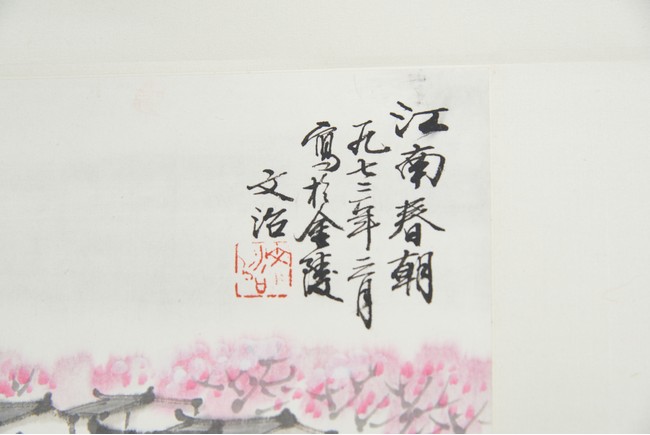 江南春朝
一九七二年二月
寫於金陵
文治